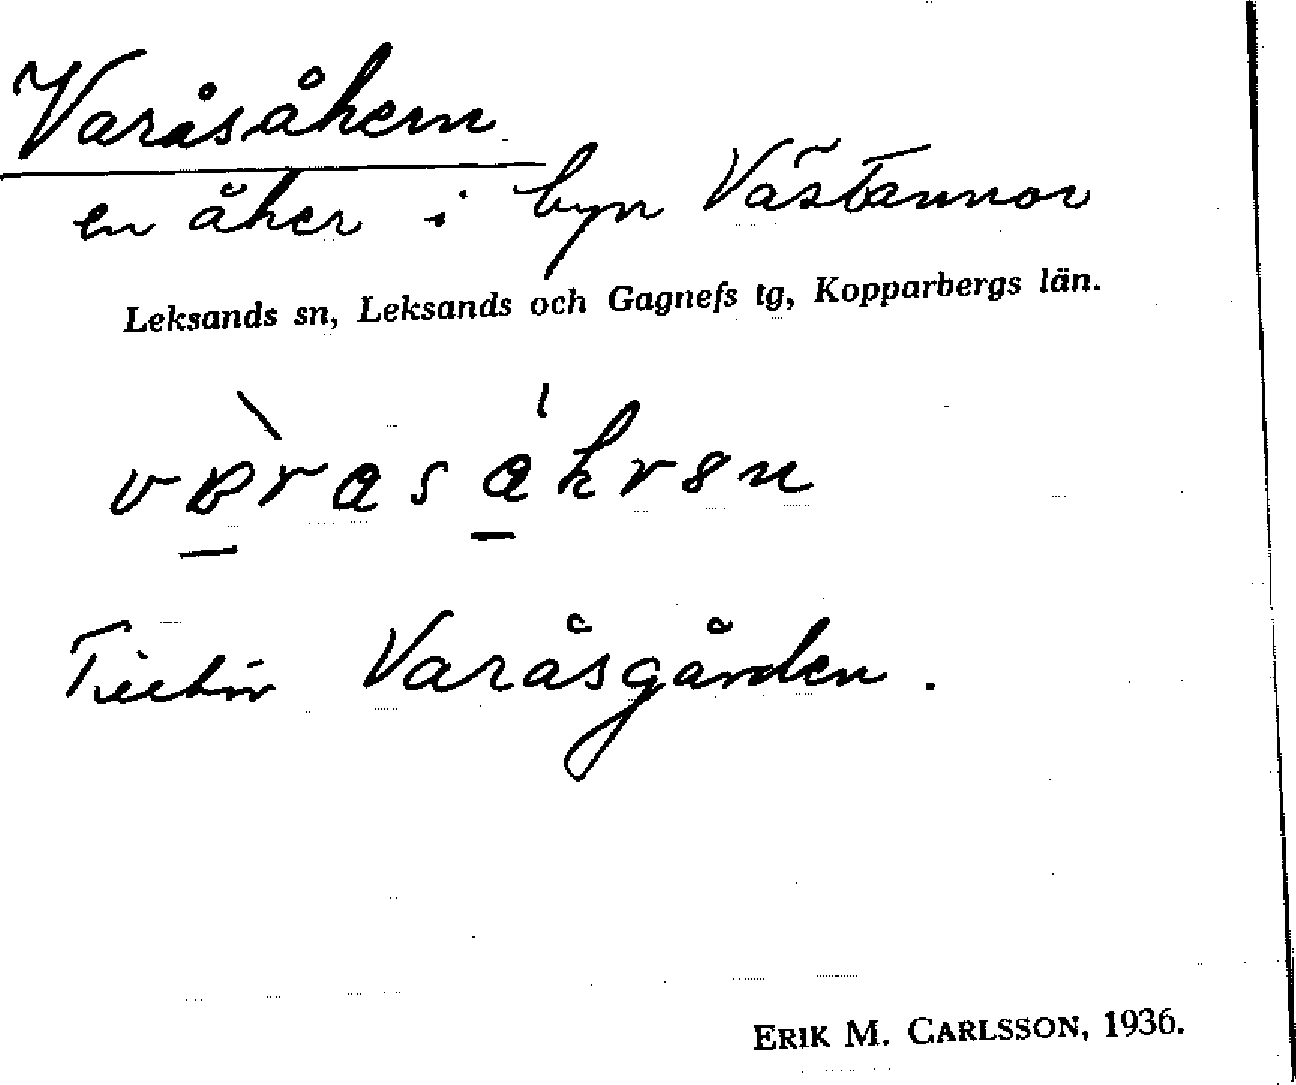 Varåsåkern
en åker i byn Västannor
Leksands sn, Leksands och Gagnefs tg, Kopparbergs län.
Tillhör Varåsgården.
ERIK M. CARLSSON, 1936.